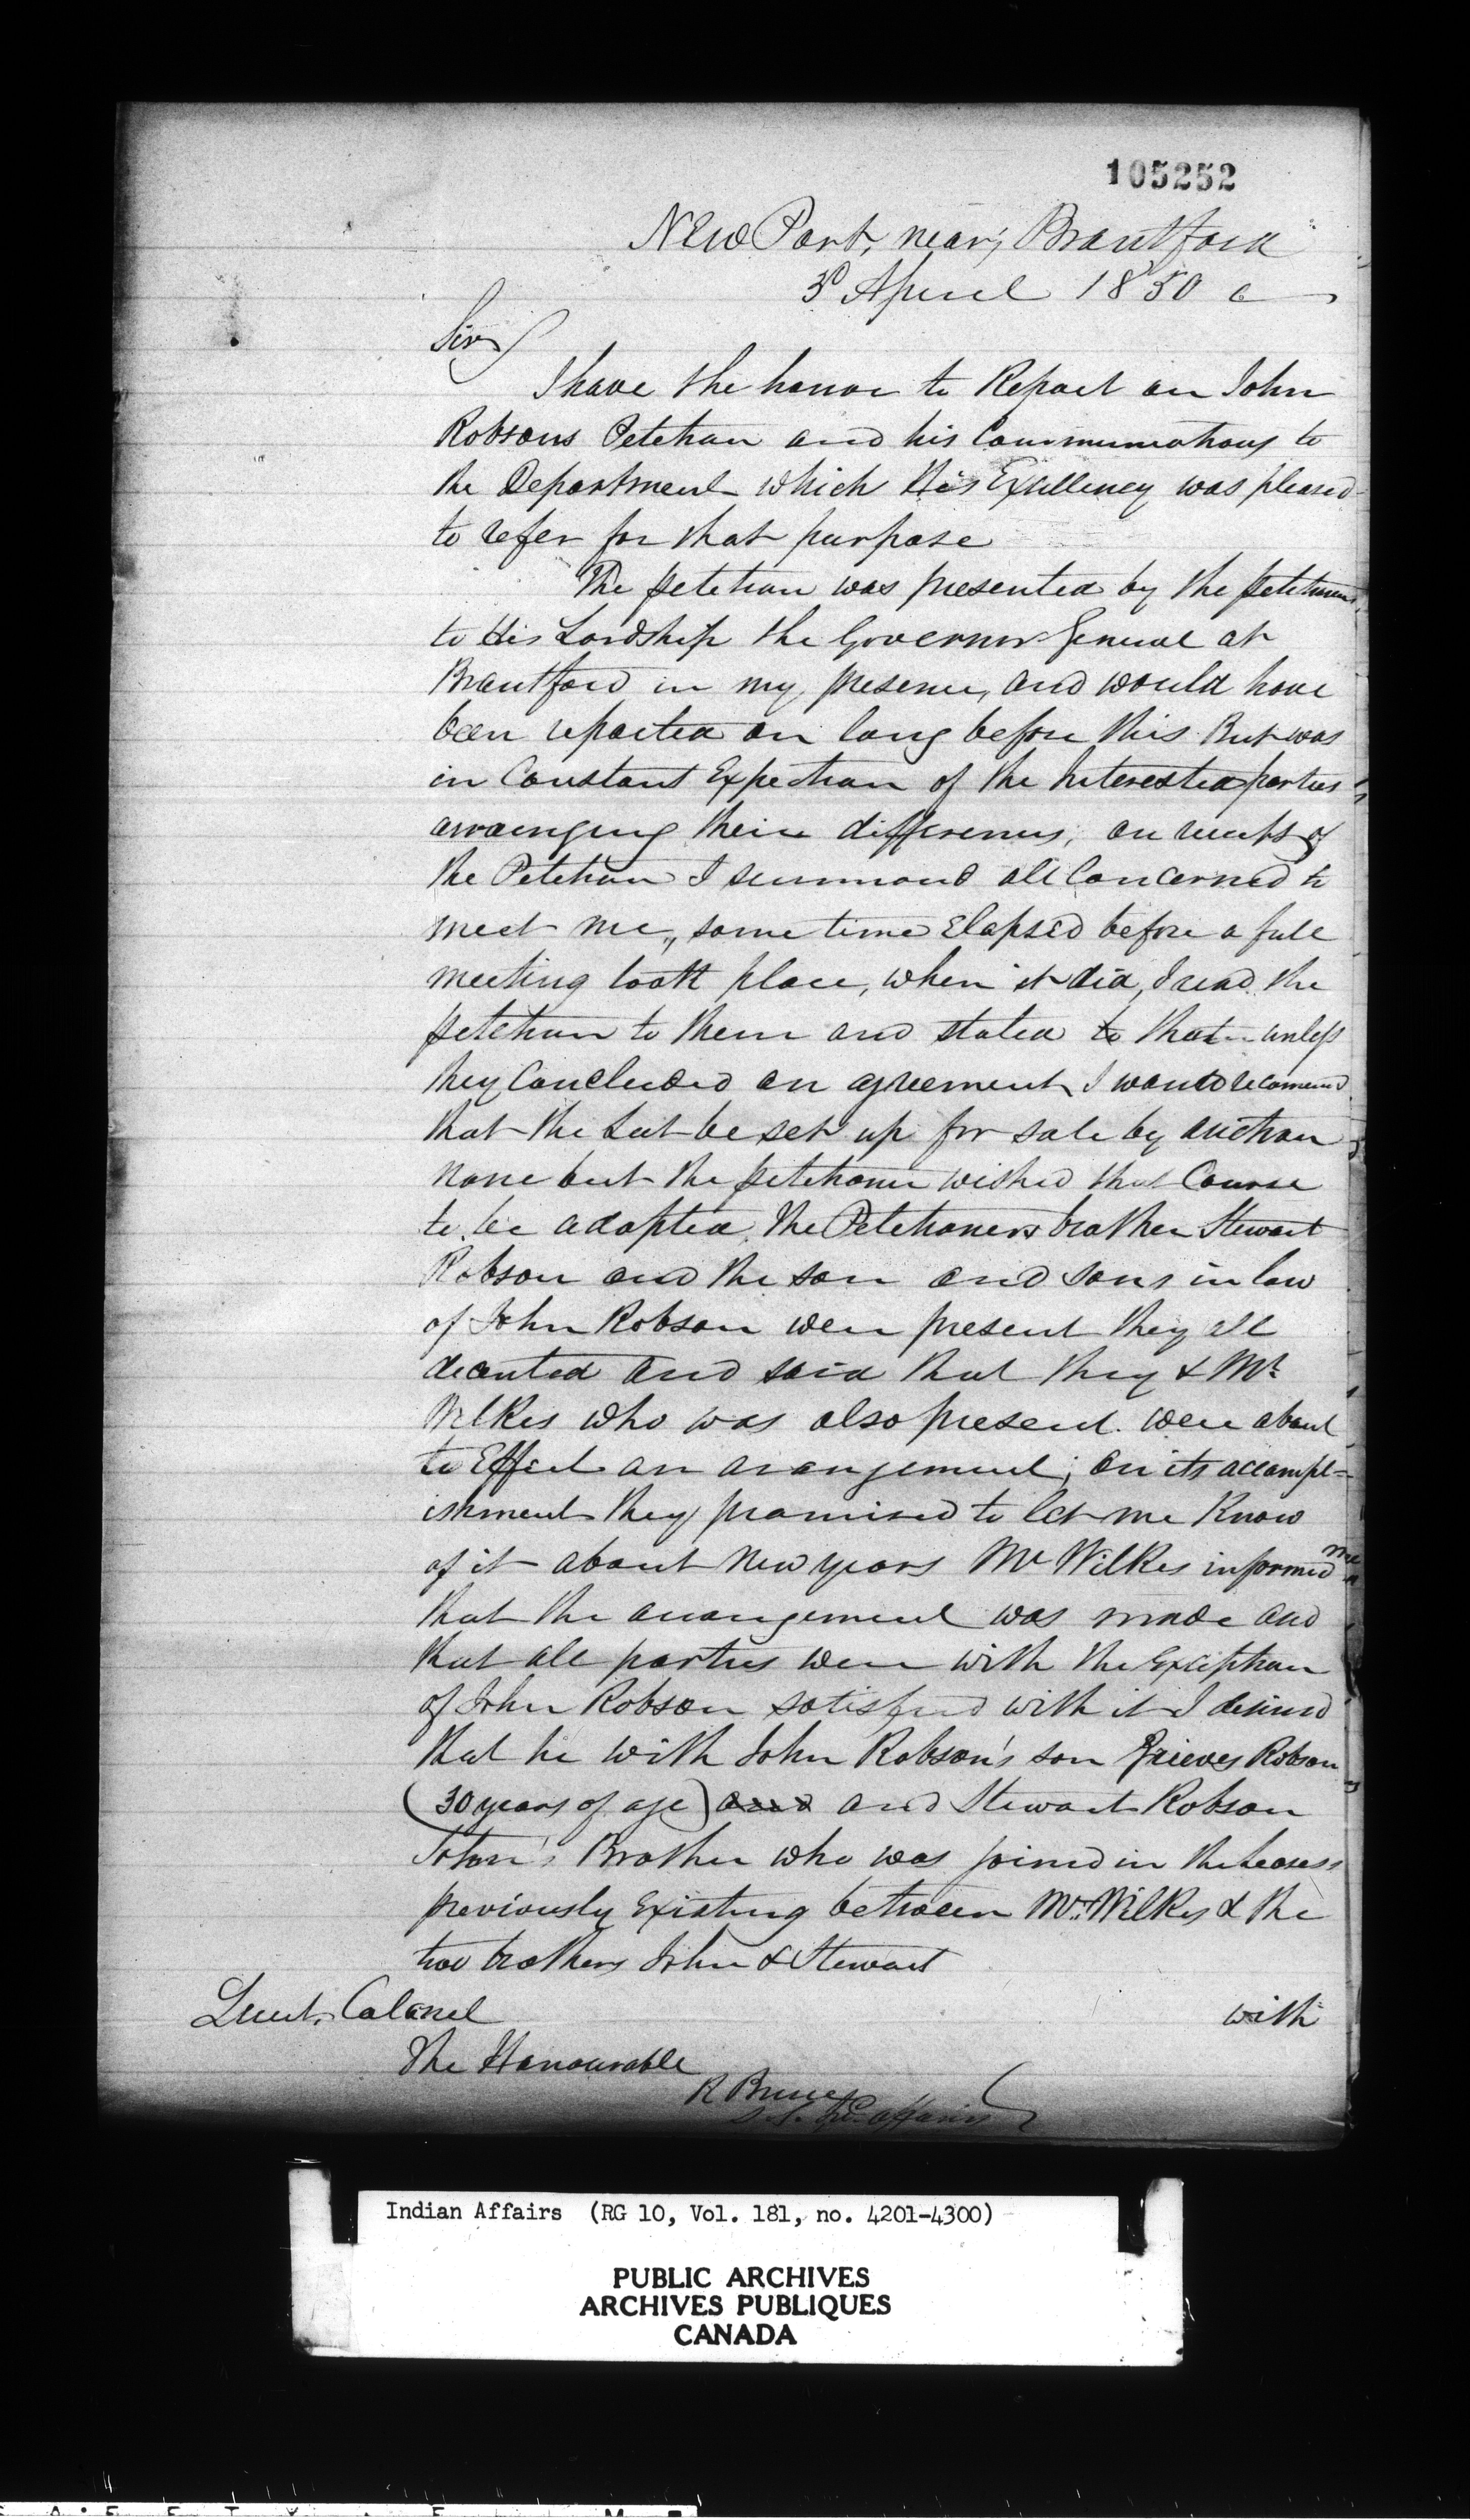 105252
New Port, near, Brantford
3d April 1850
Sir
I have the honor to Report on John
Robsons Petition and his Communications to
the Department which His Excellency was pleased
to refer for that purpose
The petition was presented by the petitioner
to His Lordship the Governor General at
Brantford in my presence, and would have
been reported on long before this But was
in Constant Expection of the Interested parties
arrainging their differences, on receipt of
the Petition I summond all Concerned to
meet me,, some time Elapsed before a full
meeting took place, when it did, I read the
petition to them and stated to that unless
they Concluded an agreement I would recomend
that the Lot be set up for sale by auction
none but the petitioner wished that Course
to be adopted, the Petitioners brother Stewart
Robson and the son and sons in law
of John Robson were present they all
decented and said that they & Mr
Wilkes who was also present were about
to Effect an arangement; on its accompl=
ishment they promised to let me Know
of it about New years Mr Wilkes informed me
that the arrangement was made and
that all parties were with the Exception
of John Robson satisfied with it I desired
that he with John Robson's son Grieves Robson
(30 years of age) and and Stewart Robson
John's Brother who was joined in the Leases
previously Existing between Mr. Wilkes & the
two brothers John & Stewart
with
Lieut. Colonel
The Honourable
R Bruce
Affairs
Indian Affairs (RG 10, Vol. 181, no. 4201-4300)
PUBLIC ARCHIVES
ARCHIVES PUBLIQUES
CANADA